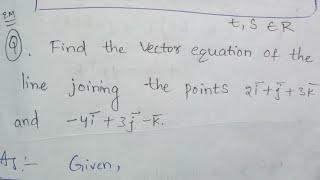 t, S ∈ R
2M
Q. Find the Vector equation of the
line joining the points 2i̅+j̅+3k̅
and -4i̅+3j̅-k̅.
Given,